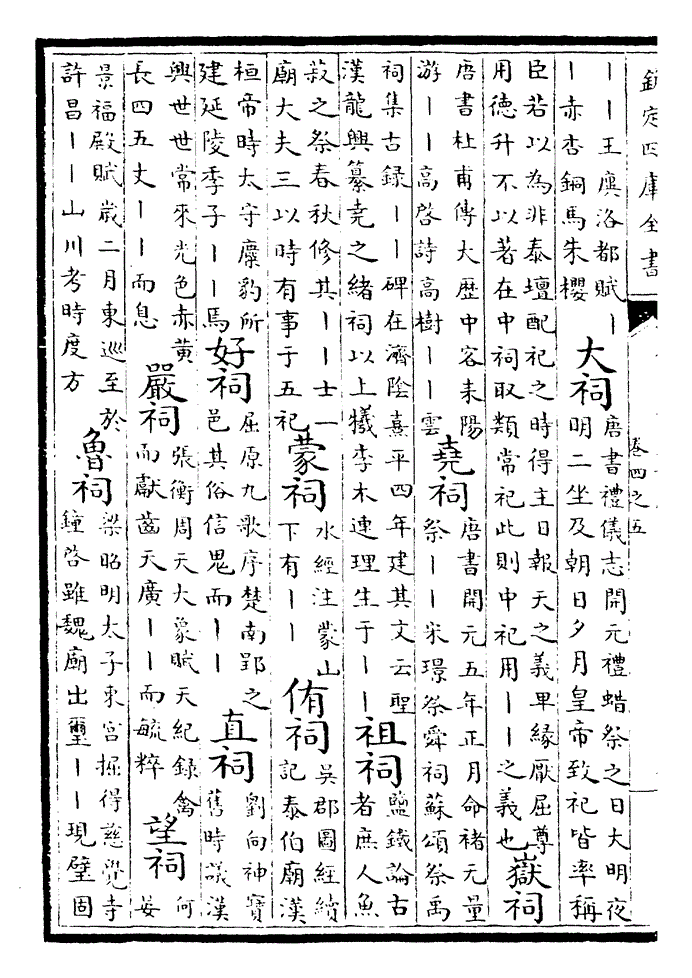 欽定四庫全書
卷四之五
｜｜王廙洛都賦｜
｜赤杏銅馬朱櫻
大祠
唐書禮儀志開元禮蜡祭之日大明夜
明二坐及朝日夕月皇帝致祀皆率稱
臣若以為非泰壇配祀之時得主日報天之義卑緣厭屈尊
用德升不以著在中祠取類常祀此則中祀用｜｜之義也
嶽祠
唐書杜甫傳大歴中客耒陽
游｜｜高啓詩高樹｜｜雲
堯祠
唐書開元五年正月命禇元量
祭｜｜宋璟祭舜祠蘇頌祭禹
祠集古録｜｜碑在濟陰熹平四年建其文云聖
漢龍興纂堯之緒祠以上犧李木連理生于｜｜
祖祠
鹽鐵論古
者庶人魚
菽之祭春秋修其｜｜士一
廟大夫三以時有事于五祀
蒙祠
水經注蒙山
下有｜｜
侑祠
吴郡圖經續
記泰伯廟漢
桓帝時太守麋豹所
建延陵季子｜｜焉
好祠
屈原九歌序楚南郢之
邑其俗信鬼而｜｜
直祠
劉向神寶
舊時議漢
興世世常來光色赤黄
長四五丈｜｜而息
嚴祠
張衡周天大象賦天紀録禽
而獻齒天廣｜｜而毓粹
望祠
何
晏
景福殿賦歲二月東巡至於
許昌｜｜山川考時度方
魯祠
梁昭明太子東宫掘得慈覺寺
鐘啓雖魏廟出璽｜｜現璧固